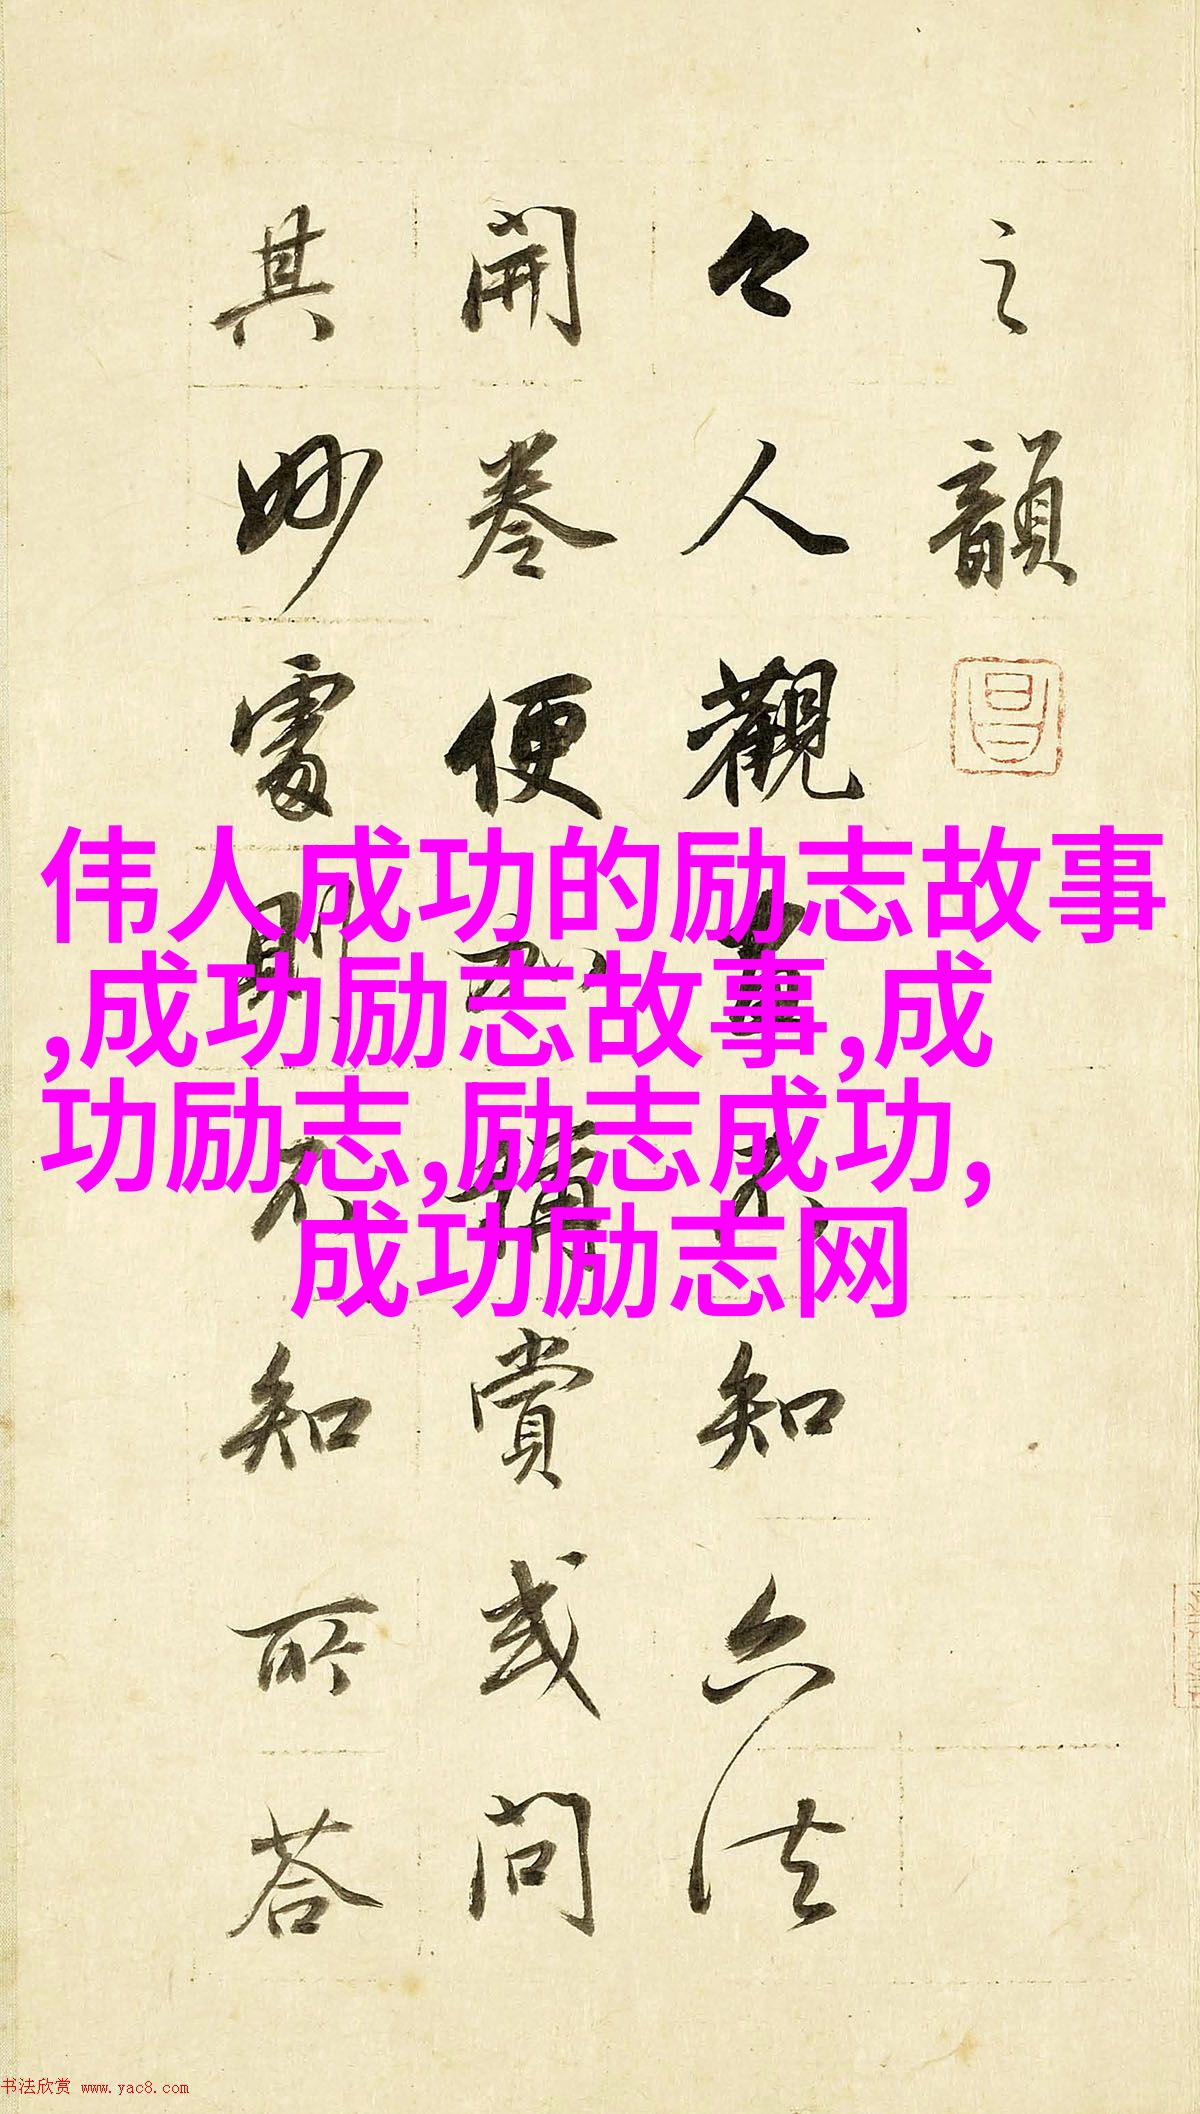 之韻
今人觀畫不知六法
開卷便加稱賞或問
其妙處則不知所答
伟人成功的励志故事
,成功励志故事,成
功励志,励志成功,
成功励志网
书法欣赏 www.yac8.com